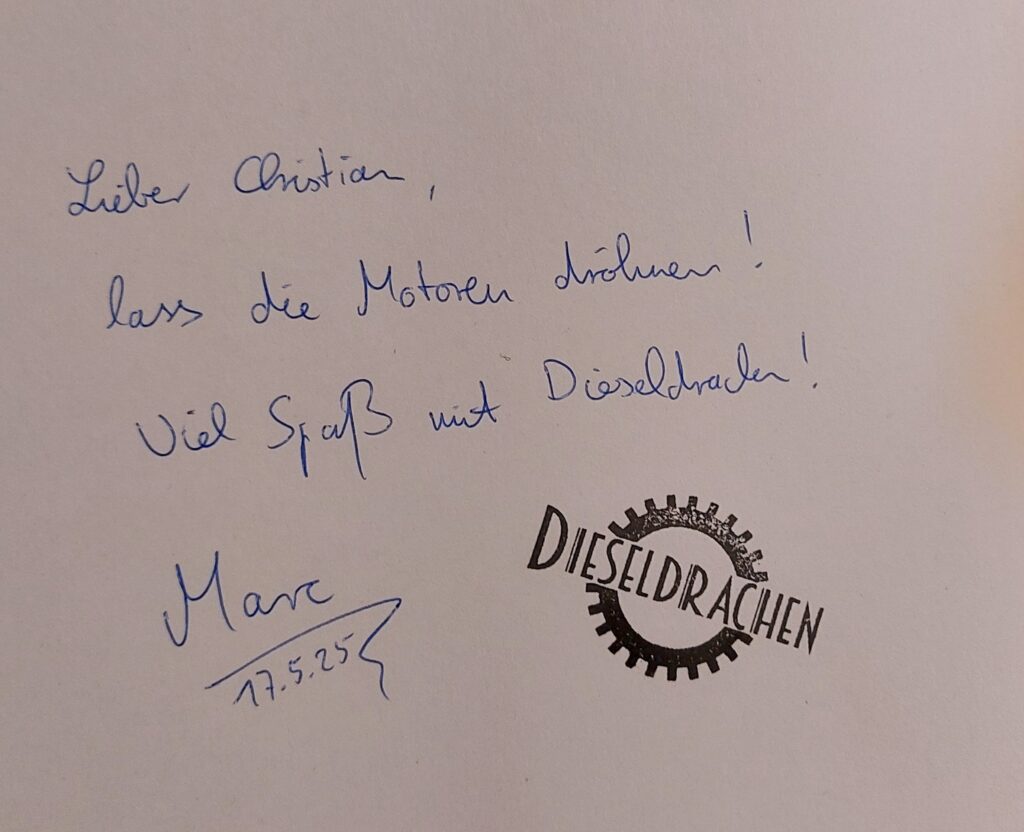 Lieber Christian,
lass die Motoren dröhnen!
Viel Spaß mit Dieseldrachen!
Marc
17.5.25
DIESELDRACHEN